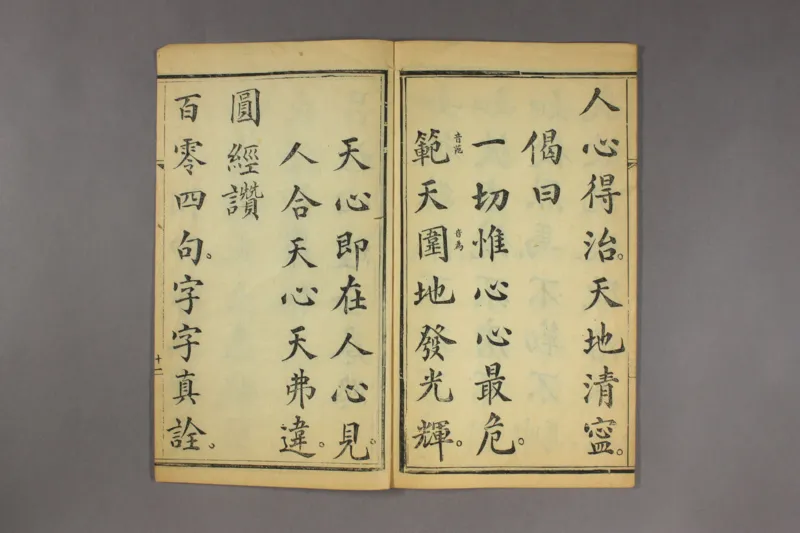 人心得治。天地清寍。
偈曰
一切惟心心最危。
範天圍地發光輝。
音范
音為
天心即在人心見。
人合天心天弗違。
圓經讚
百零四句。字字真詮。
十一